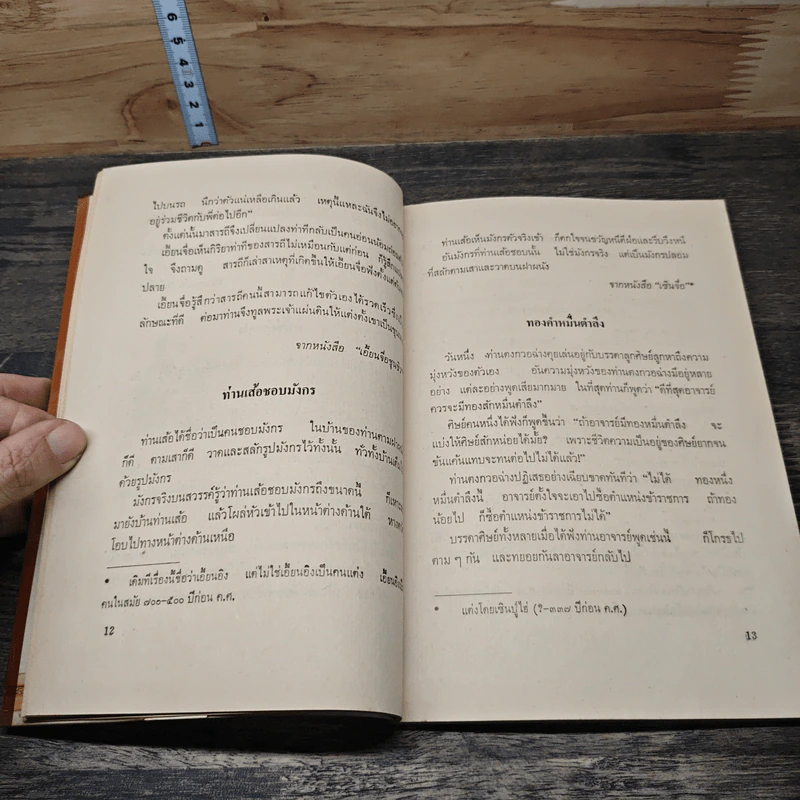 6 5 4 3 2 1
ไปบนรถ นึกว่าตัวแน่เหลือเกินแล้ว เหตุนี้แหละฉันจึงไม่
อยู่ร่วมชีวิตกับพี่ต่อไปอีก”
ตั้งแต่นั้นมาสารถีจึงเปลี่ยนแปลงท่าทีกลับเป็นคนอ่อนน้อม
เอี้ยนจื่อเห็นกิริยาท่าที่ของสารถีไม่เหมือนกับแต่ก่อน ก็รู้สึก
ใจ จึงถามดู สารถีก็เล่าสาเหตุที่เกิดขึ้นให้เอี้ยนจื่อฟังตั้งแต่
ปลาย
เอี้ยนจื่อรู้สึกว่าสารถีคนนี้สามารถแก้ไขตัวเองได้รวดเร็ว
ลักษณะที่ดี ต่อมาท่านจึงทูลพระเจ้าแผ่นดินให้แต่งตั้งเขาเป็น
จากหนังสือ “เอี้ยนจื่อชุน
ท่านเส้อชอบมังกร
ท่านเส้อได้ชื่อว่าเป็นคนชอบมังกร ในบ้านของท่านตาม
ก็ดี ตามเสาก็ดี วาดและสลักรูปมังกรไว้ทั้งนั้น ทั่วทั้งบ้าน
ด้วยรูปมังกร
มังกรจริงบนสวรรค์รู้ว่าท่านเส้อชอบมังกรถึงขนาดนี้ ก็เหาะ
มายังบ้านท่านเส้อ แล้วโผล่หัวเข้าไปในหน้าต่างด้านใต้ หาง
โอบไปทางหน้าต่างด้านเหนือ
• เดิมทีเรื่องนี้ชื่อว่าเอี้ยนอิง แต่ไม่ใช่เอี้ยนอิงเป็นคนแต่ง
คนในสมัย ๗๐๐-๕๐๐ ปีก่อน ค.ศ.
12
ท่านเส้อเห็นมังกรตัวจริงเข้า ก็ตกใจจนขวัญหนีดีฝ่อและรีบวิ่งหนี
อันมังกรที่ท่านเส้อชอบนั้น ไม่ใช่มังกรจริง แต่เป็นมังกรปลอม
ที่สลักตามเสาและวาดบนฝาผนัง
จากหนังสือ “เซินจื่อ”•
ทองคำหมื่นตำลึง
วันหนึ่ง ท่านตงกวอฉ่างคุยเล่นอยู่กับบรรดาลูกศิษย์ลูกหาถึงความ
มุ่งหวังของตัวเอง อันความมุ่งหวังของท่านตงกวอฉ่างมีอยู่หลาย
อย่าง แต่ละอย่างพูดเสียมากมาย ในที่สุดท่านก็พูดว่า “ดีที่สุดอาจารย์
ควรจะมีทองสักหมื่นตำลึง”
ศิษย์คนหนึ่งได้ฟังก็พูดขึ้นว่า “ถ้าอาจารย์มีทองหมื่นตำลึง จะ
แบ่งให้ศิษย์สักหน่อยได้มั้ย? เพราะชีวิตความเป็นอยู่ของศิษย์ยากจน
ข้นแค้นแทบจะทนต่อไปไม่ได้แล้ว!”
ท่านตงกวอฉ่างปฏิเสธอย่างเฉียบขาดทันทีว่า “ไม่ได้ ทองหนึ่ง
หมื่นตำลึงนี้ อาจารย์ตั้งใจจะเอาไปซื้อตำแหน่งข้าราชการ ถ้าทอง
น้อยไป ก็ซื้อตำแหน่งข้าราชการไม่ได้”
บรรดาศิษย์ทั้งหลายเมื่อได้ฟังท่านอาจารย์พูดเช่นนี้ ก็โกรธไป
ตาม ๆ กัน และทยอยกันลาอาจารย์กลับไป
• แต่งโดยเซินปู้ไฮ่ (?-๓๓๗ ปีก่อน ค.ศ.)
13